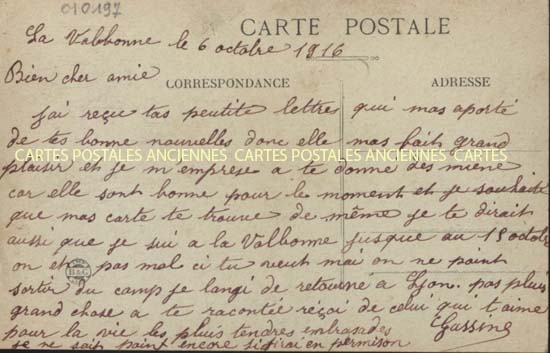 010197
CARTE POSTALE
La Valbonne le 6 octobre 1916
Bien cher amie
CORRESPONDANCE
ADRESSE
jai reçu tas peutite lettres qui mas aporté
de tes bonne nouvelles donc elle mas fait grand
plaisir et je m'emprese a te donne des miene
CARTES POSTALES ANCIENNES CARTES POSTALES ANCIENNES CARTES
car elle sont bonne pour le moment et je souhaite
que mas carte te trouve de même je te dirait
aussi que je sui a la Valbonne jusque au 15 octobre
on et pas mal ci tu veut mai on ne point
B&G
sortir du camp je langi de retourné a Lyon. pas pluis
grand chose a te racontée reçoi de celui qui t'aime
pour la vie les pluis tendres embrasades
je ne sait point encore si jirai en permison